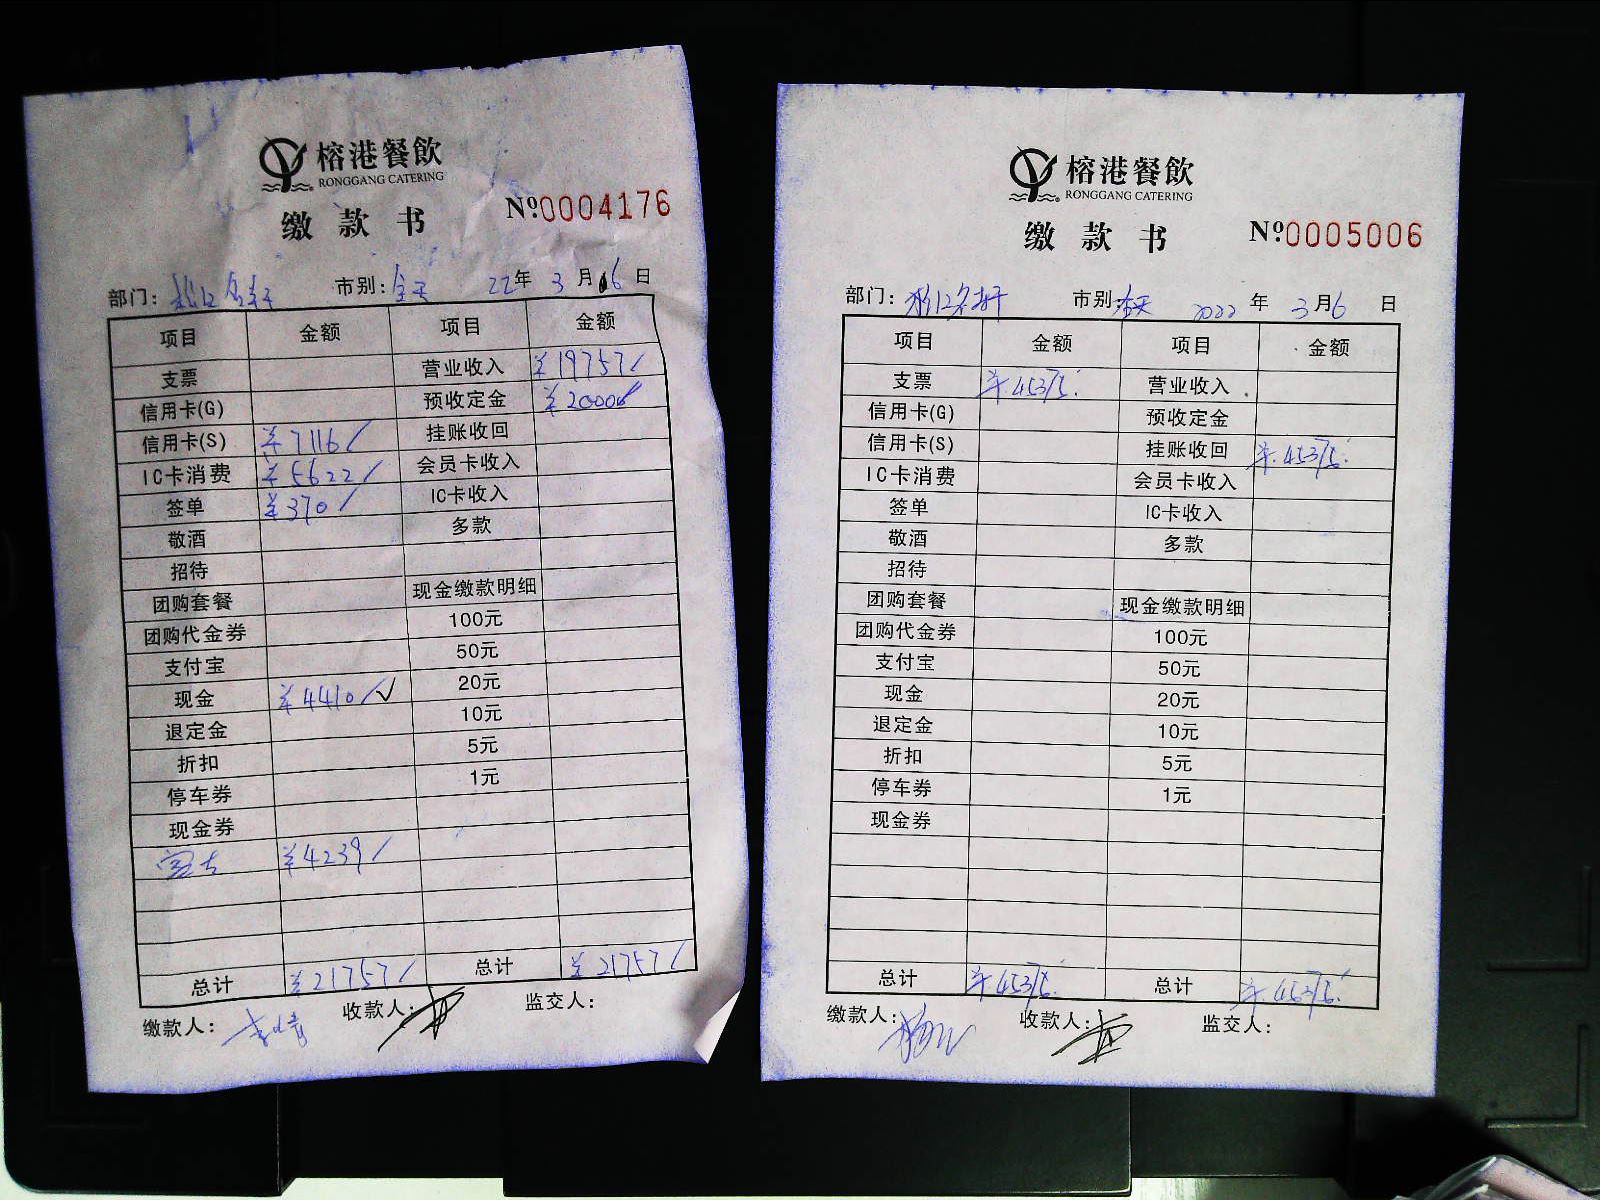 榕港餐飲
RONGGANG CATERING
缴款书
№0004176
部门： 市别：全天 22年 3月6日
项目 金额 项目 金额
支票 营业收入 ¥19757/
信用卡(G) 预收定金 ¥2000/
信用卡(S) ¥7116/ 挂账收回
IC卡消费 ¥5622/ 会员卡收入
签单 ¥370/ IC卡收入
敬酒 多款
招待
团购套餐 现金缴款明细
团购代金券 100元
支付宝 50元
现金 ¥4410/✓ 20元
退定金 10元
折扣 5元
停车券 1元
现金券
¥4239/
总计 ¥21757/ 总计 ¥21757/
缴款人： 收款人： 监交人：
榕港餐飲
RONGGANG CATERING
缴款书
№0005006
部门： 市别： 2022年 3月6日
项目 金额 项目 金额
支票 ¥4537.5 营业收入
信用卡(G) 预收定金
信用卡(S) 挂账收回 ¥4537.5
IC卡消费 会员卡收入
签单 IC卡收入
敬酒 多款
招待
团购套餐 现金缴款明细
团购代金券 100元
支付宝 50元
现金 20元
退定金 10元
折扣 5元
停车券 1元
现金券
总计 总计
缴款人： 收款人： 监交人：